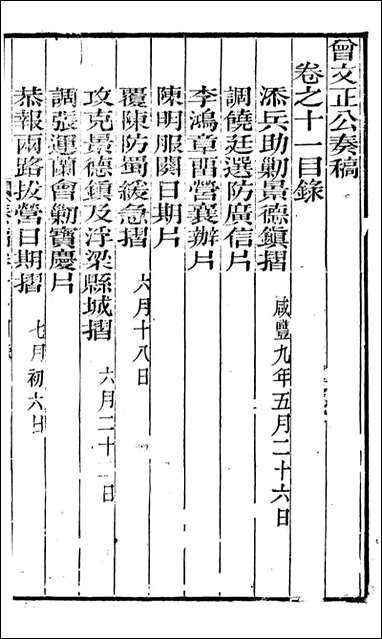 曾文正公奏稿
卷之十一目錄
添兵助勦景德鎮摺 咸豐九年五月二十六日
調饒廷選防廣信片
李鴻章畱營襄辦片
陳明服闋日期片
覆陳防蜀緩急摺 六月十八日
攻克景德鎮及浮梁縣城摺 六月二十二日
調張運蘭會勦寶慶片
恭報兩路拔營日期摺 七月初六日